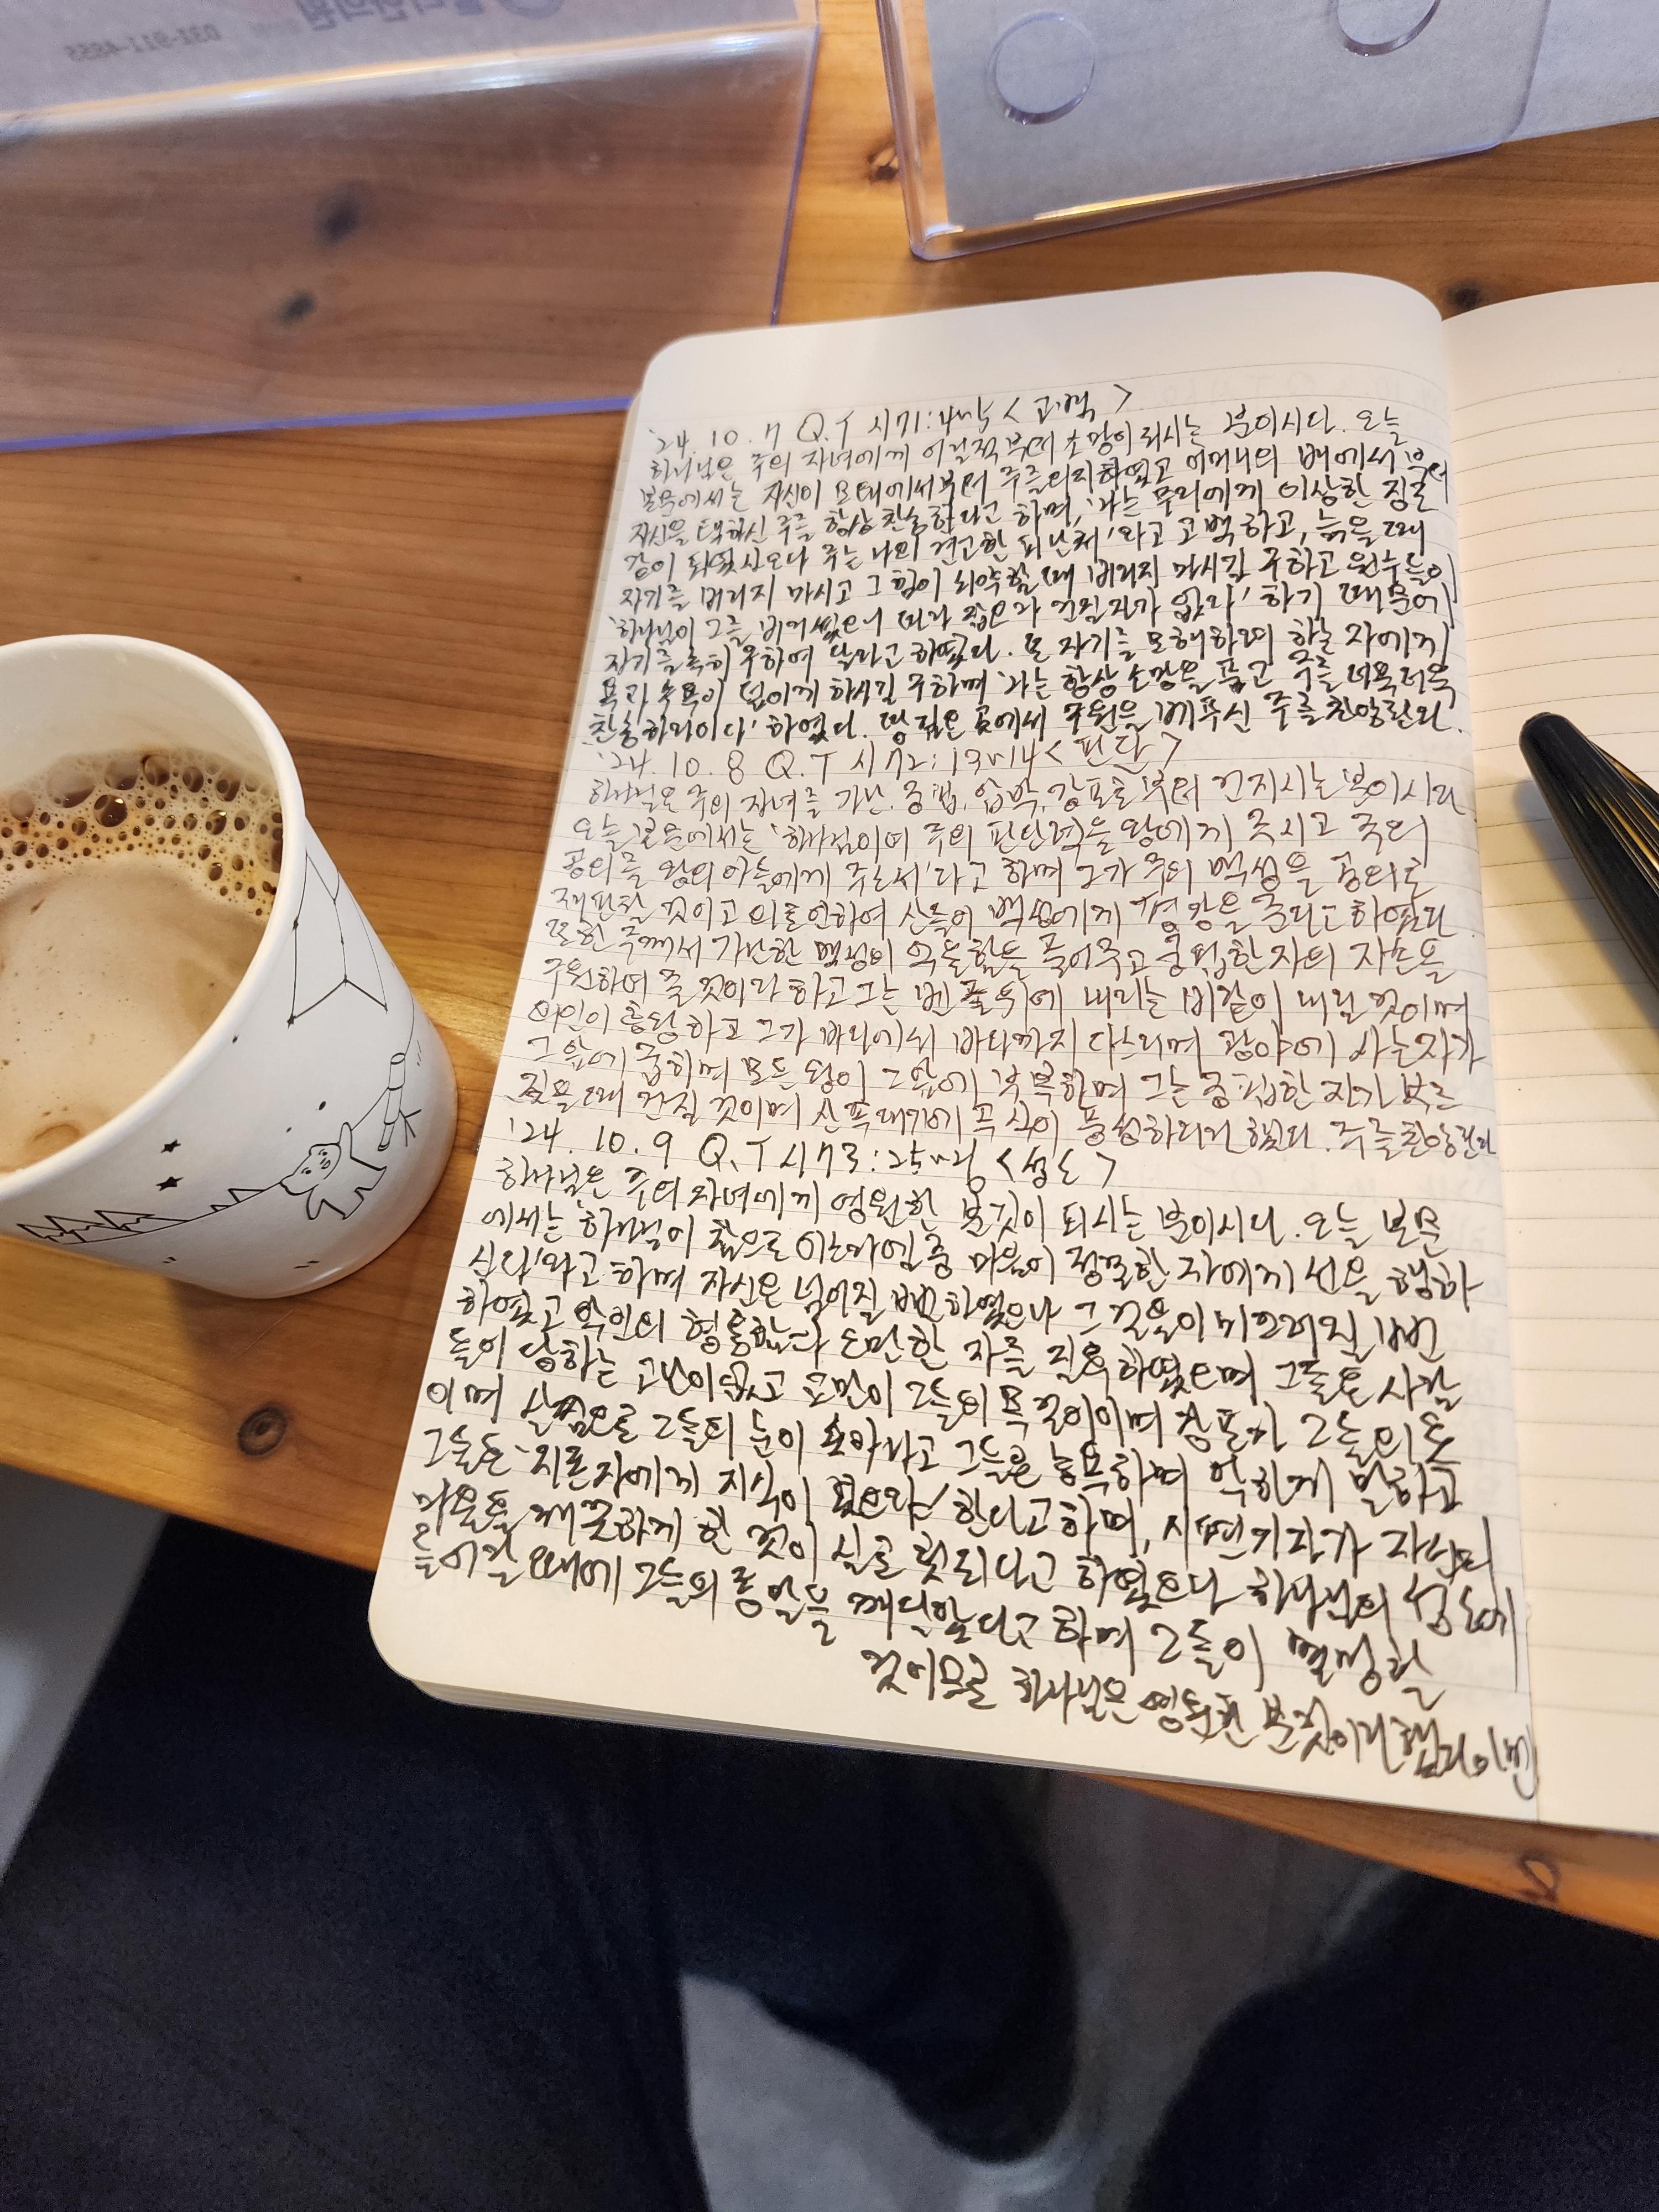 031-911-4855
'24. 10. 7 Q.T 시71:4~5 <고백>
하나님은 주의 자녀에게 어릴적부터 소망이 되시는 분이시다. 오늘
본문에서는 자신이 모태에서부터 주를 의지하였고 어머니의 배에서부터
자신을 택하신 주를 항상 찬송한다고 하며, '나는 무리에게 이상한 징조
같이 되었사오나 주는 나의 견고한 피난처'라고 고백하고, 늙을 때
자기를 버리지 마시고 그 힘이 쇠약할 때 버리지 마시길 구하고 원수들이
'하나님이 그를 버리셨으니 따라 잡으라 건질 자가 없다' 하기 때문에
자기를 속히 구하여 달라고 하였다. 또 자기를 모해하려 하는 자에게
욕과 수욕이 덮이게 하시길 구하며 '나는 항상 소망을 품고 주를 더욱더욱
찬송하리이다' 하였다. 땅 깊은 곳에서 구원을 베푸신 주를 찬양한다.
'24. 10. 8 Q.T 시72:13~14 <판단>
하나님은 주의 자녀를 가난, 궁핍, 압박, 강포로부터 건지시는 분이시다
오늘 본문에서는 '하나님이여 주의 판단력을 왕에게 주시고 주의
공의를 왕의 아들에게 주소서'라고 하며 그가 주의 백성을 공의로
재판할 것이고 의로 인하여 산들이 백성에게 평강을 준다고 하였다
또한 주께서 가난한 백성의 억울함을 풀어주고 궁핍한 자의 자손을
구원하여 줄 것이라 하고 그는 벤 풀 위에 내리는 비같이 내릴 것이며
의인이 흥왕하고 그가 바다에서 바다까지 다스리며 광야에 사는 자가
그 앞에 굽히며 모든 왕이 그 앞에 부복하며 그는 궁핍한 자가 부르
짖을 때 건질 것이며 산꼭대기에 곡식이 풍성하리라 했다. 주를 찬양한다
'24. 10. 9 Q.T 시73: <성소>
하나님은 주의 자녀에게 영원한 분깃이 되시는 분이시다. 오늘 본문
에서는 '하나님이 참으로 이스라엘 중 마음이 정결한 자에게 선을 행하
신다'라고 하며 자신은 넘어질 뻔하였으나 그 걸음이 미끄러질 뻔
하였고 악인의 형통함과 오만한 자를 질투하였으며 그들은 사람
들이 당하는 고난이 없고 교만이 그들의 목걸이이며 강포가 그들의 옷
이며 살찜으로 그들의 눈이 솟아나고 그들은 능욕하며 악하게 말하고
그들은 '지존자에게 지식이 있으랴' 한다고 하며, 시편기자가 자신의
마음을 깨끗하게 한 것이 실로 헛되다고 하였으나 하나님의 성소에
들어갈 때에 그들의 종말을 깨달았다고 하며 그들이 멸망할
것이므로 하나님은 영원한 분깃이라 했다.